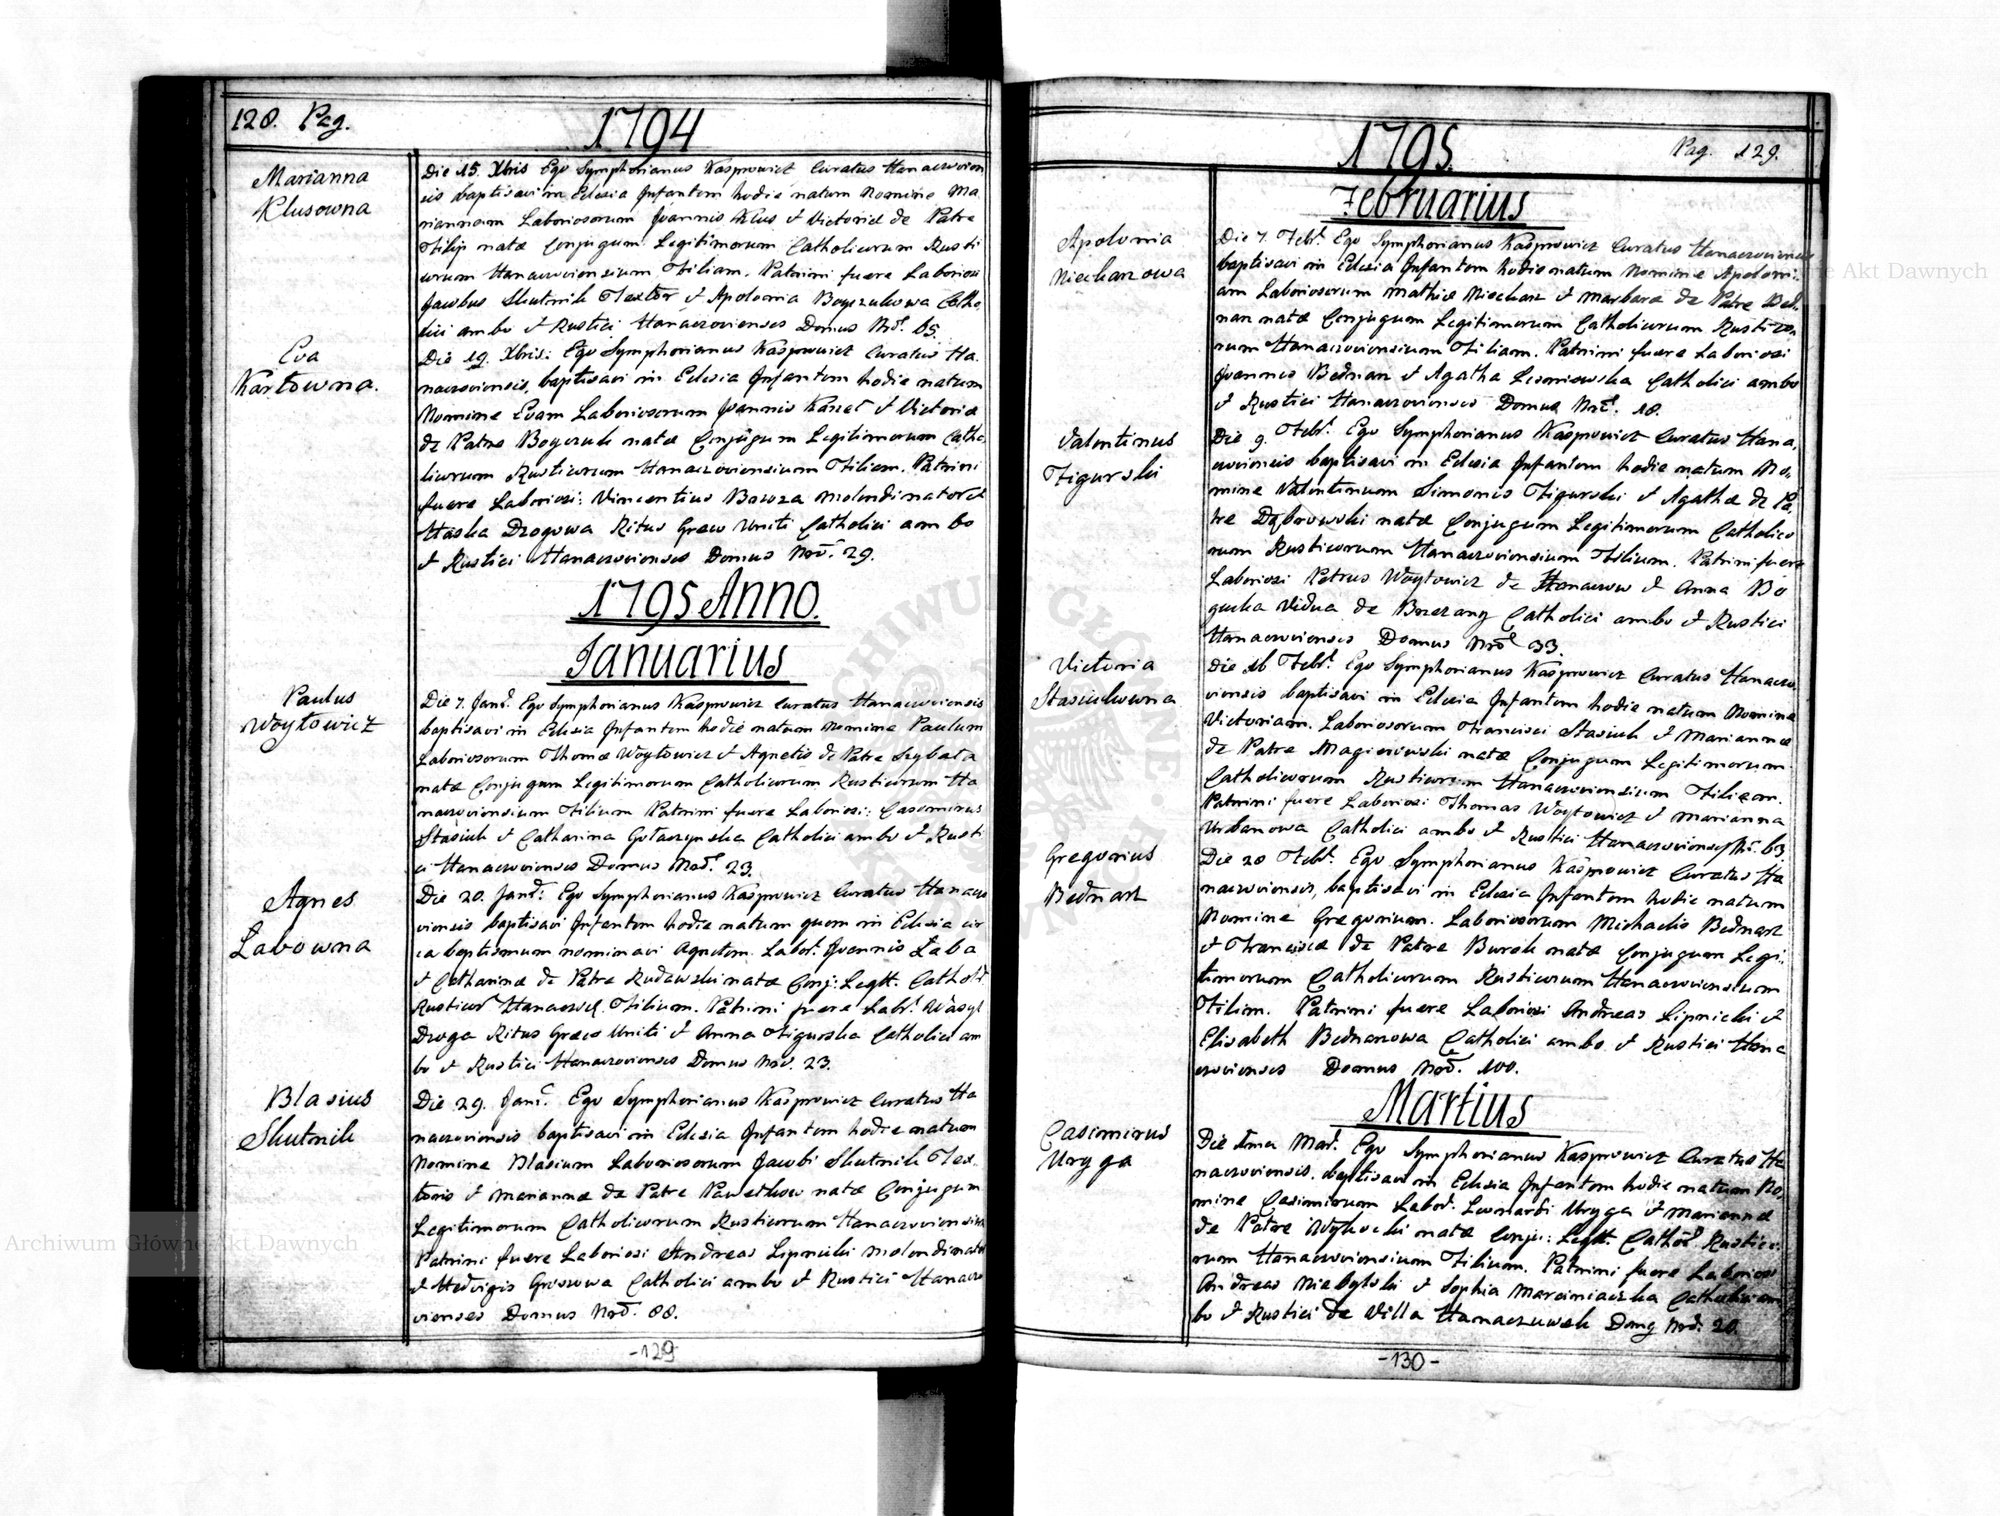 128. Pag.
1794
Marianna
Klusowna
Die 15. Xbris Ego Symphorianus Kasprowicz Curatus Hanaczovien
sis baptisavi in Eclesia Infantem hodie natum Nomine Ma
riannam Laboriosorum Joannis Klus et Victoriæ de Patre
Filip natæ Conjugum Legitimorum Catholicorum Rusti
corum Hanaczoviensium Filiam. Patrini fuere Laboriosi
Jacobus Skutnik Textor et Apolonia Boyczukowa Catho,
lici ambo et Rustici Hanaczovienses Domus Nrŏ. 65.
Eva
Karłowna.
Die 19. Xbris: Ego Symphorianus Kasprowicz Curatus Ha,
naczoviensis, baptisavi in Eclesia Infantem hodie natum
Nomine Evam Laboriosorum Joannis et Victoriæ
de Patre Boyczuk natæ Conjugum Legitimorum Catho,
licorum Rusticorum Hanaczoviensium Filiam. Patrini
fuere Laboriosi: Vincentius molendinator et
Haska Drogowa Ritus Græco Uniti Catholici ambo
et Rustici Hanaczovienses Domus Nrŏ. 29.
1795 Anno.
Januarius
Paulus
Woytowicz
Die 7. Janŭ. Ego Symphorianus Kasprowicz Curatus Hanaczoviensis
baptisavi in Eclesia Infantem hodie natum nomine Paulum
Laboriosorum Thomæ Woytowicz et Agnetis de Patre Szybała
natæ Conjugum Legitimorum Catholicorum Rusticorum Ha
naczoviensium Filium Patrini fuere Laboriosi: Casimirus
Stasiuk et Catharina Gołaszynska Catholici ambo et Rusti
ci Hanaczovienses Domus Nrŏ. 23.
Agnes
Łabowna
Die 20. Janŭ: Ego Symphorianus Kasprowicz Curatus Hanaczo
viensis baptisavi Infantem hodie natum quem in Eclesia cir
ca baptismum nominavi Agnetem. Labor. Joannis Łaba
et Catharinæ de Patre Rudawski natæ Conj: Legtt. Cathol:
Rusticor Hanaczov. Filium. Patrini fuere Labr. Wasyl
Droga Ritus Græco Uniti et Anna Figurska Catholici am
bo et Rustici Hanaczovienses Domus Nrŏ. 23.
Blasius
Skutnik
Die 29. Janŭ. Ego Symphorianus Kasprowicz Curatus Ha
naczoviensis baptisavi in Eclesia Infantem hodie natum
Nomine Blasium Laboriosorum Jacobi Skutnik Tex,
toris et Mariannæ de Patre natæ Conjugum
Legitimorum Catholicorum Rusticorum Hanaczoviensium
Patrini fuere Laboriosi Andreas Lipnicki molendinator
et Hedvigis Catholici ambo et Rustici Hanaczo
vienses Domus Nrŏ. 88.
-129
1795.
Pag. 129.
Februarius
Apolonia
Niecharzowa
Die 7. Febr. Ego Symphorianus Kasprowicz Curatus Hanaczoviensis
baptisavi in Eclesia Infantem hodie natum Nomine Apoloni,
am Laboriosorum Mathiæ Niecharz et Marbaræ de Patre Bed,
narz natæ Conjugum Legitimorum Catholicorum Rustico,
rum Hanaczoviensium Filiam. Patrini fuere Laboriosi
Joannes Bednarz et Agatha Lesniowska Catholici ambo
et Rustici Hanaczovienses Domus Nrŏ. 18.
Valentinus
Figurski
Die 9. Febr. Ego Symphorianus Kasprowicz Curatus Hana,
czoviensis baptisavi in Eclesia Infantem hodie natum No,
mine Valentinum Simonis Figurski et Agathæ de Pa,
tre Dąbrowski natæ Conjugum Legitimorum Catholico
rum Rusticorum Hanaczoviensium Filium. Patrini fuere
Laboriosi Petrus Woytowicz de Hanaczow et Anna Bo
gucka Vidua de Brzezany Catholici ambo et Rustici
Hanaczovienses Domus Nrŏ 33.
Victoria
Stasiukowna
Die 16 Febr. Ego Symphorianus Kasprowicz Curatus Hanaczo,
viensis baptisavi in Eclesia Infantem hodie natum Nomine
Victoriam. Laboriosorum Francisci Stasiuk et Mariannæ
de Patre Magierowski natæ Conjugum Legitimorum
Catholicorum Rusticorum Hanaczoviensium Filiam.
Patrini fuere Laboriosi Thomas Woytowicz et Marianna
Urbanowa Catholici ambo et Rustici Hanaczovienses Nrŏ. 63
Gregorius
Bednarz
Die 20 Febr. Ego Symphorianus Kasprowicz Curatus Ha
naczoviensis, baptisavi in Eclesia Infantem hodie natum
Nomine Gregorium. Laboriosorum Michaelis Bednarz
et Franciscæ de Patre Burak natæ Conjugum Legi,
timorum Catholicorum Rusticorum Hanaczoviensium
Filium. Patrini fuere Laboriosi Andreas Lipnicki et
Elisabeth Bednarzowa Catholici ambo et Rustici Hana
czovienses Domus Nrŏ. 100.
Martius
Casimirus
Uryga
Die 1ma Mar. Ego Symphorianus Kasprowicz Curatus Ha
naczoviensis. baptisavi in Eclesia Infantem hodie natum No,
mine Casimirum Labor. Leonardi Uryga et Mariannæ
de Patre Wysocki natæ Conju: Legtt. Cathol Rustico
rum Hanaczoviensium Filium. Patrini fuere Laboriosi
Andreas Niebylski et Sophia Marciniaczka Catholici am
bo et Rustici de Villa Hanaczuwek Domg Nrŏ. 20.
-130-
Archiwum Główne Akt Dawnych